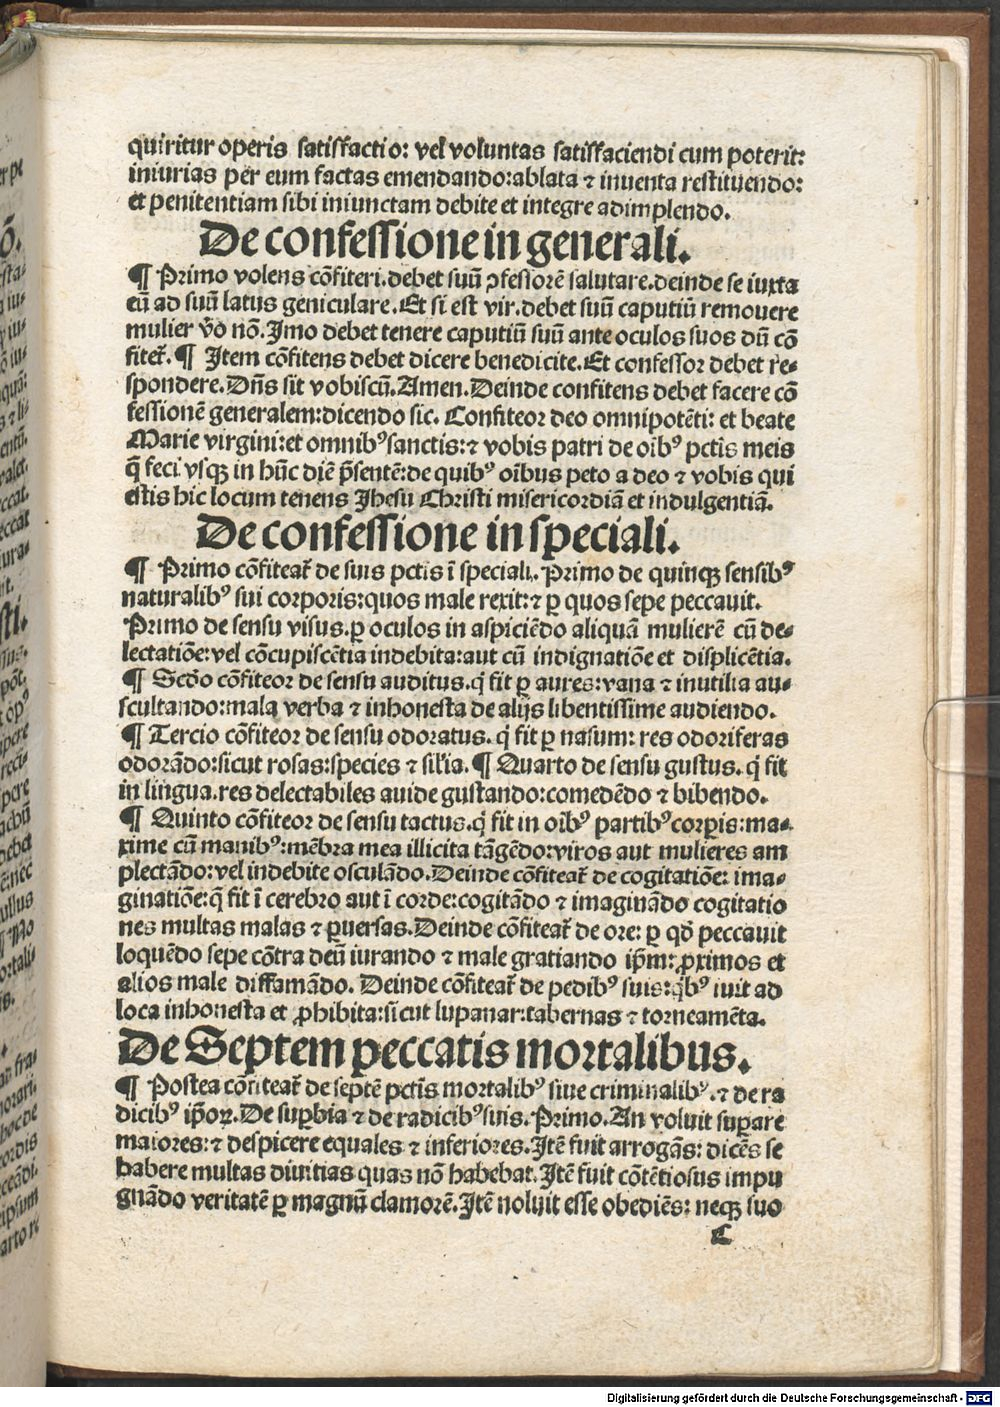 quiritur operis satisfactio: vel voluntas satisfaciendi cum poterit:
iniurias per eum factas emendando: ablata ⁊ inuenta restituendo:
et penitentiam sibi iniunctam debite et integre adimplendo.
De confessione in generali.
¶ Primo volens cõfiteri. debet suũ ꝯfessorẽ salutare. deinde se iuxta
eũ ad suũ latus geniculare. Et si est vir. debet suũ caputiũ remouere
mulier v̾o nõ. Imo debet tenere caputiũ suũ ante oculos suos dũ cõ
fitet᷑. ¶ Item cõfitens debet dicere benedicite. Et confessor debet re⸗
spondere. Dñs sit vobiscũ. Amen. Deinde confitens debet facere cõ
fessionẽ generalem: dicendo sic. Confiteor deo omnipotẽti: et beate
Marie virgini: et omnibꝰ sanctis: ⁊ vobis patri de oĩbꝰ pctĩs meis
q̃ feci vsqꝫ in hũc diẽ p̃sentẽ: de quibꝰ oĩbus peto a deo ⁊ vobis qui
estis hic locum tenens Jhesu Christi misericordiã et indulgentiã.
De confessione in speciali.
¶ Primo cõfiteat᷑ de suis pctĩs ĩ speciali. Primo de quinqꝫ sensibꝰ
naturalibꝰ sui corporis: quos male rexit: ⁊ ꝑ quos sepe peccauit.
Primo de sensu visus. ꝑ oculos in aspiciẽdo aliquã mulierẽ cũ de⸗
lectatiõe: vel cõcupiscẽtia indebita: aut cũ indignatiõe et displicẽtia.
¶ Scðo cõfiteor de sensu auditus. q̇ fit ꝑ aures: vana ⁊ inutilia au⸗
scultando: mala verba ⁊ inhonesta de alijs libentissime audiendo.
¶ Tercio cõfiteor de sensu odoratus. q̇ fit ꝑ nasum: res odoriferas
odorãdo: sicut rosas: species ⁊ sil̾ia. ¶ Quarto de sensu gustus. q̇ fit
in lingua. res delectabiles auide gustando: comedẽdo ⁊ bibendo.
¶ Quinto cõfiteor de sensu tactus. q̇ fit in oĩbꝰ partibꝰ corꝑis: ma⸗
xime cũ manibꝰ: mẽbra mea illicita tãgẽdo: viros aut mulieres am
plectãdo: vel indebite osculãdo. Deinde cõfiteat᷑ de cogitatiõe: ima⸗
ginatiõe: q̃ fit ĩ cerebro aut ĩ corde: cogitãdo ⁊ imaginãdo cogitatio
nes multas malas ⁊ ꝑuersas. Deinde cõfiteat᷑ de ore: ꝑ qð peccauit
loquẽdo sepe cõtra deũ iurando ⁊ male gratiando ip̃m: ꝓximos et
alios male diffamãdo. Deinde cõfiteat᷑ de pedibꝰ suis: q̇bꝰ iuit ad
loca inhonesta et ꝓhibita: sicut lupanar: tabernas ⁊ torneamẽta.
De Septem peccatis mortalibus.
¶ Postea cõfiteat᷑ de septẽ pctĩs mortalibꝰ siue criminalibꝰ. ⁊ de ra
dicibꝰ ip̃oꝝ. De suꝑbia ⁊ de radicibꝰ suis. Primo. An voluit suꝑare
maiores: ⁊ despicere equales ⁊ inferiores. Itẽ fuit arrogãs: dicẽs se
habere multas diuitias quas nõ habebat. Itẽ fuit cõtẽtiosus impu
gnãdo veritatẽ ꝑ magnũ clamorẽ. Itẽ noluit esse obediẽs: neqꝫ suo
c
Digitalisierung gefördert durch die Deutsche Forschungsgemeinschaft - DFG